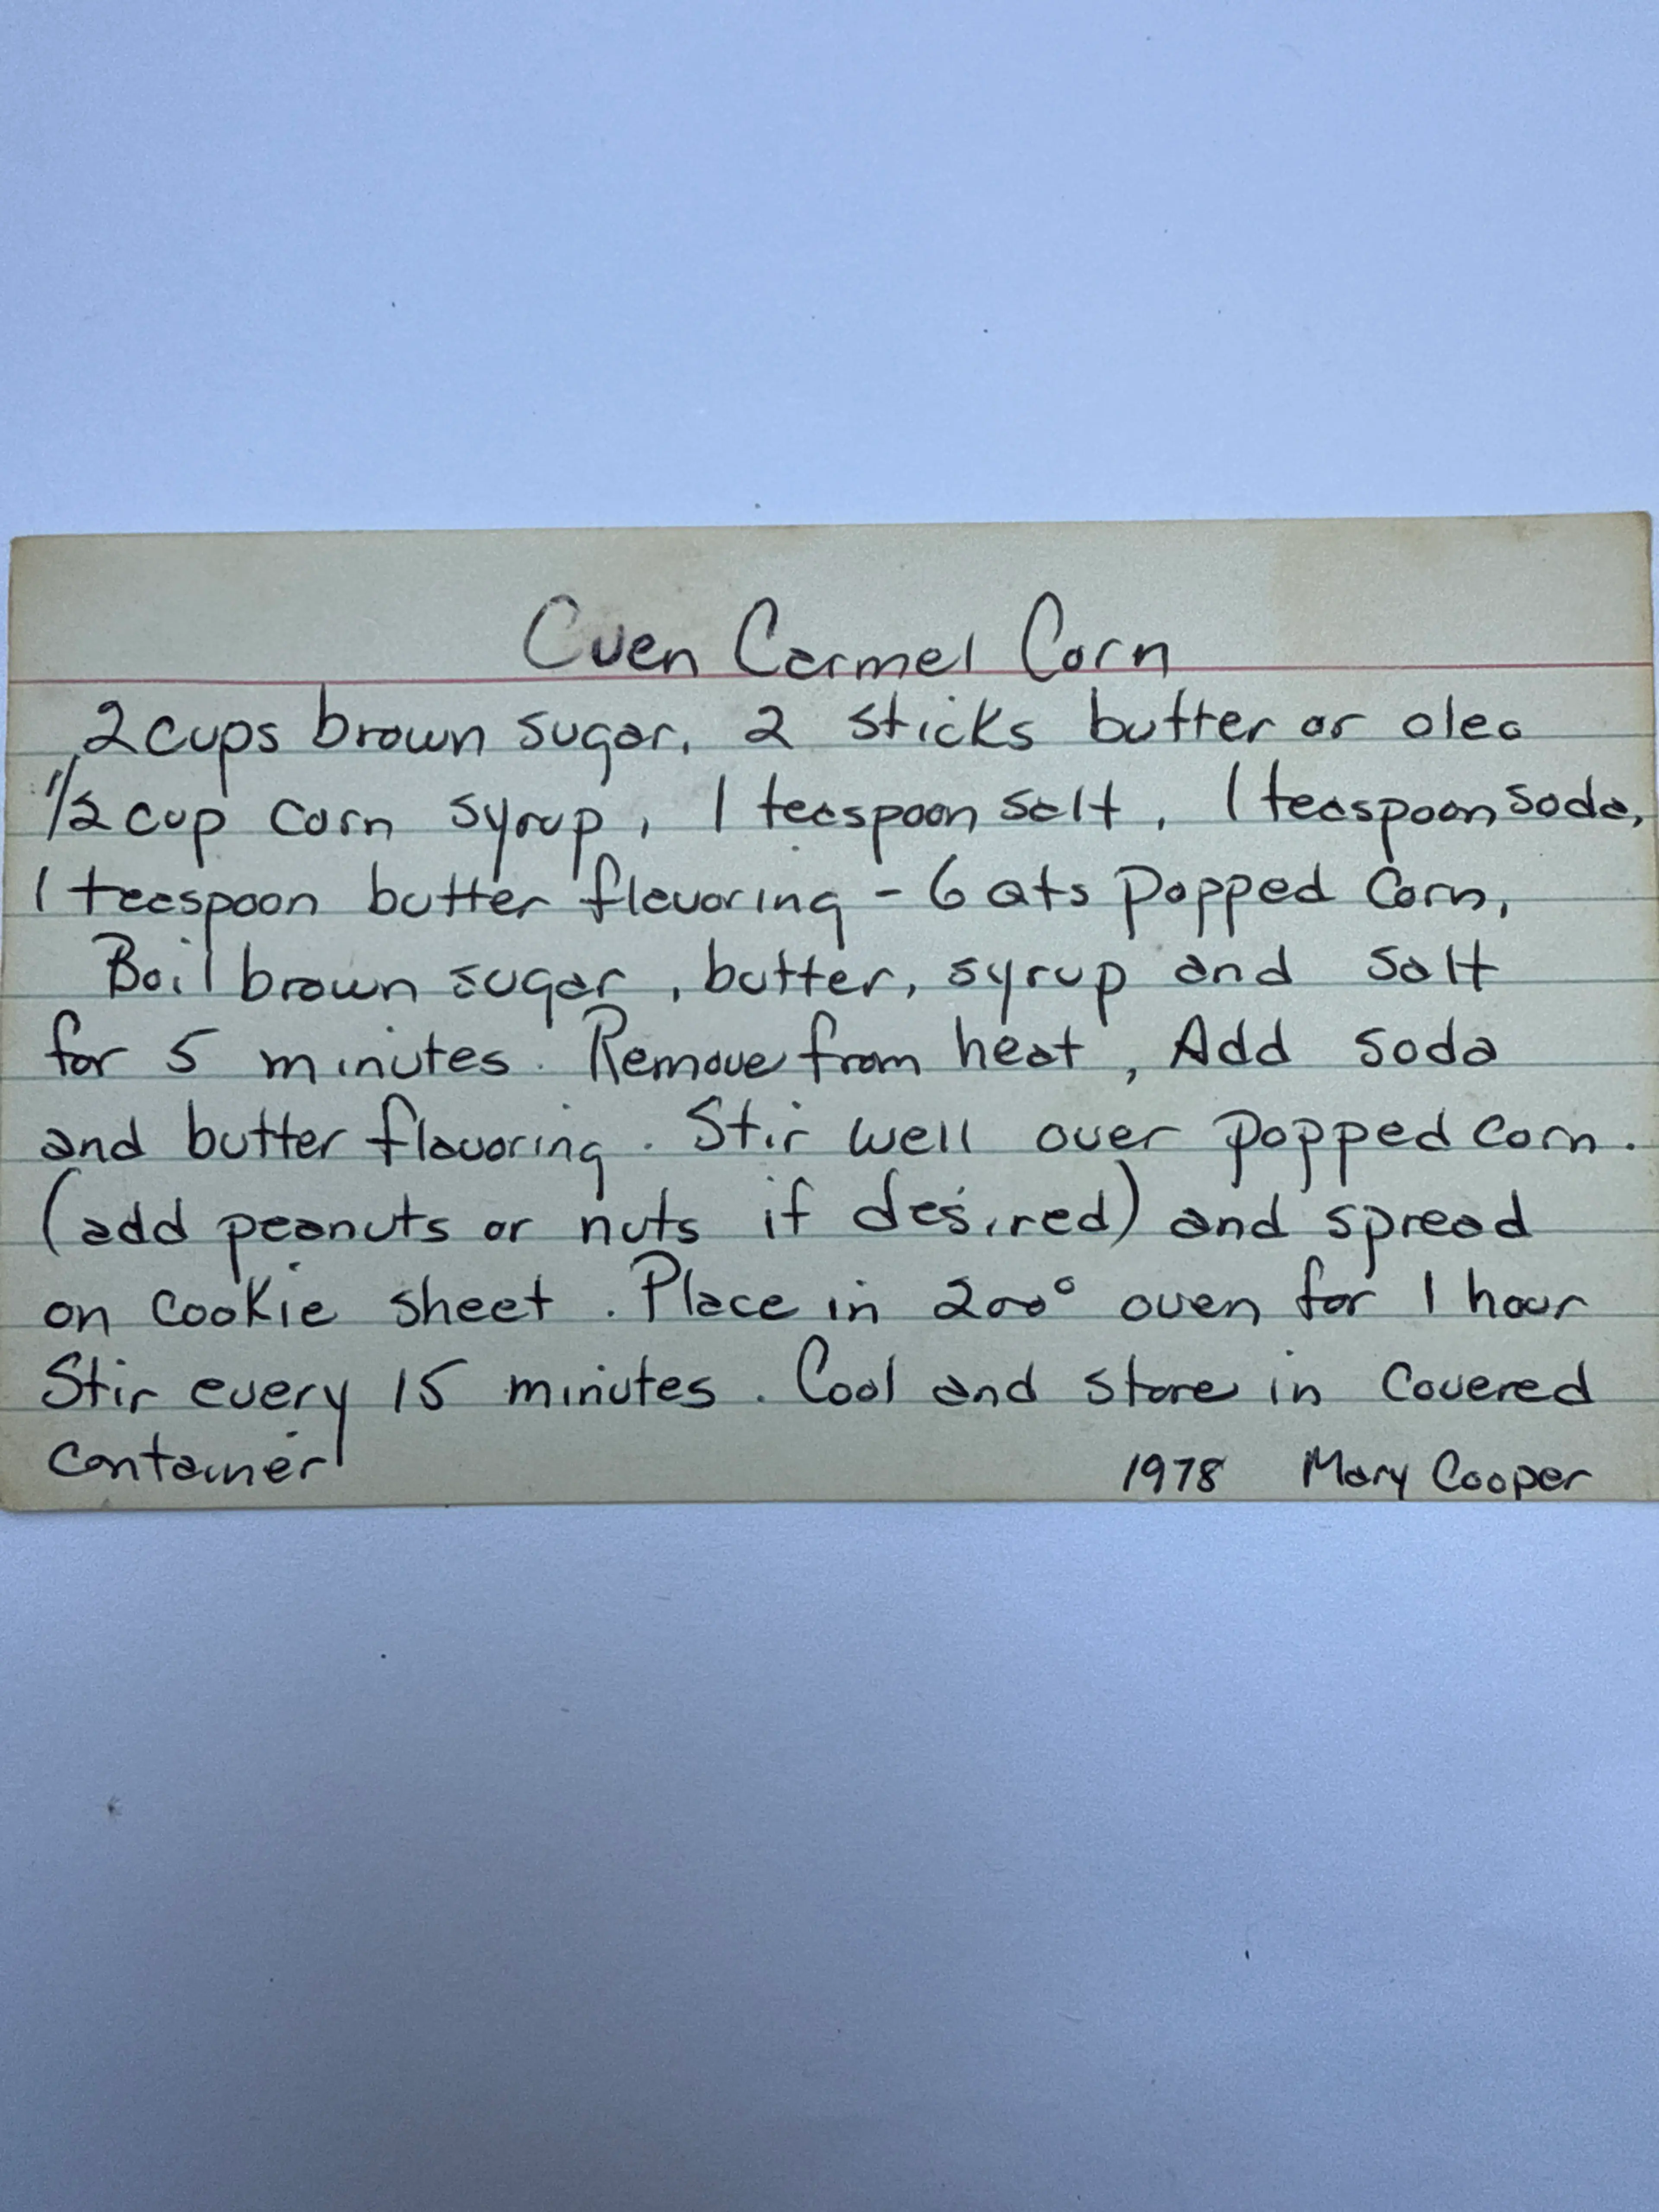 Oven Carmel Corn
2 cups brown sugar, 2 sticks butter or oleo
1/2 cup corn syrup, 1 teaspoon salt, 1 teaspoon soda,
1 teaspoon butter flavoring - 6 qts popped corn,
Boil brown sugar, butter, syrup and salt
for 5 minutes. Remove from heat, Add soda
and butter flavoring. Stir well over popped corn.
(add peanuts or nuts if desired) and spread
on cookie sheet. Place in 200° oven for 1 hour
Stir every 15 minutes. Cool and store in covered
container 1978 Mary Cooper